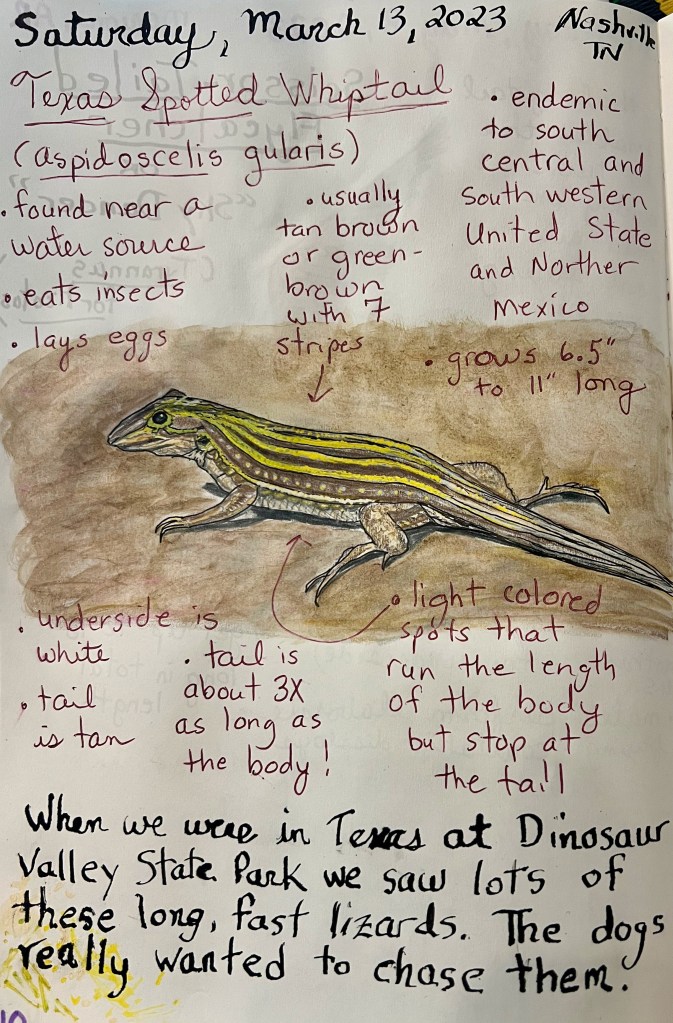 Saturday, March 13, 2023
Nashville
TN
Texas Spotted Whiptail
(aspidoscelis gularis)
• found near a
water source
• eats insects
• lays eggs
• usually
tan brown
or green-
brown
with 7
stripes
• endemic
to south
central and
South western
United State
and Norther
Mexico
• grows 6.5"
to 11" long
• underside is
white
• tail
is tan
• tail is
about 3X
as long as
the body!
• light colored
spots that
run the length
of the body
but stop at
the tail
When we were in Texas at Dinosaur
Valley State Park we saw lots of
these long, fast lizards. The dogs
really wanted to chase them.